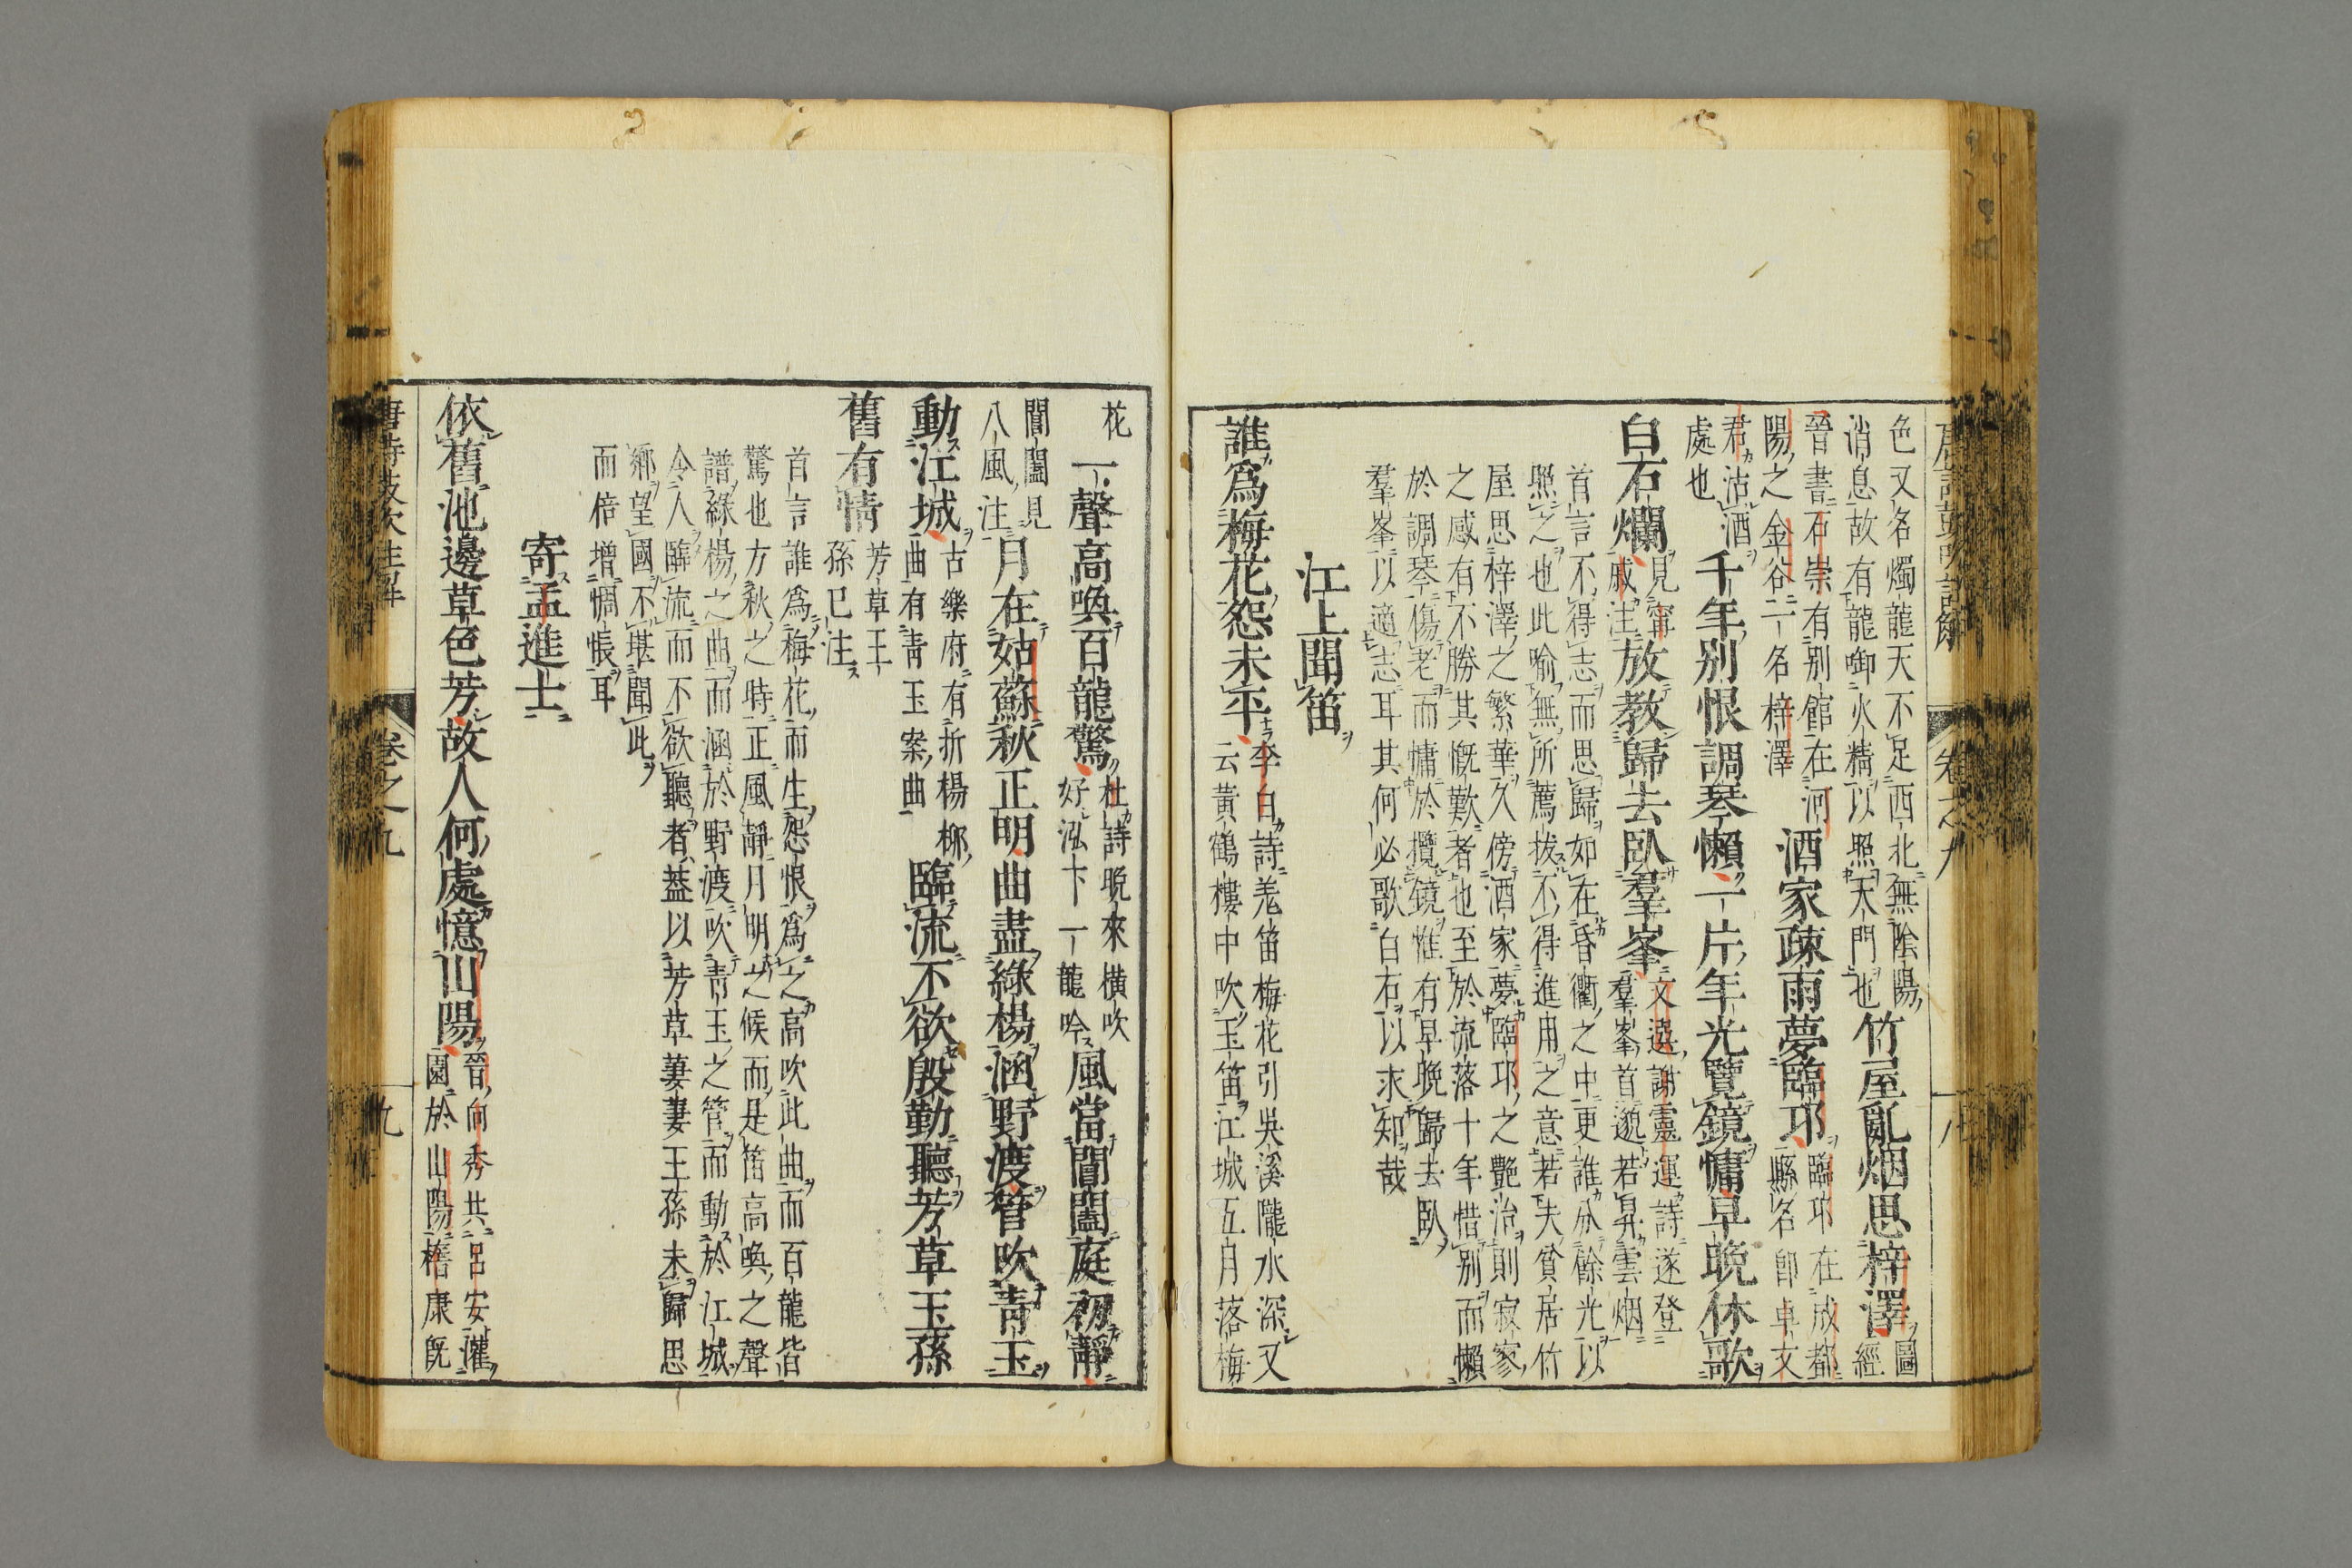 色又名燭龍天不足西北無陰陽
消息故有龍啣火精以照天門也
竹屋亂烟思梓澤
圖
經
晉書石崇有別館在河
陽之金谷一名梓澤
酒家疎雨夢臨邛
臨邛在成都
縣名卽卓文
君沽酒
處也
千年別恨調琴懶一片年光覽鏡慵早晚休歌
白石爛
見甯
戚注
放教歸去臥羣峯
文選謝靈運詩遂登
羣峯首邈若昇雲烟
首言不得志而思歸如在昏衢之中更誰分餘光以
照之也此喻無所薦拔不得進用之意若夫貧居竹
屋思梓澤之繁華久傍酒家夢臨邛之艷冶則寂寥
之感有不勝其慨歎者也至於流落十年惜別而懶
於調琴傷老而慵於攬鏡惟有早晚歸去臥
羣峯以適志耳其何必歌白石以求知哉
江上聞笛
誰爲梅花怨未平
李白詩羌笛梅花引吳溪隴水深又
云黃鶴樓中吹玉笛江城五月落梅
花
一聲高喚百龍驚
杜詩晚來橫吹
好泓下一龍吟
風當閶闔庭初靜
閶闔見
八風注
月在姑蘇秋正明曲盡綠楊涵野渡管吹青玉
動江城
古樂府有折楊柳
曲有青玉案曲
臨流不欲殷勤聽芳草王孫
舊有情
芳草王
孫已注
首言誰爲梅花而生怨恨爲之高吹此曲而百龍皆
驚也方秋之時正風靜月明之候而是笛高喚之聲
譜綠楊之曲而涵於野渡吹青玉之管而動於江城
今人臨流而不欲聽者葢以芳草萋萋王孫未歸思
鄉望國不堪聞此
而倍增惆悵耳
寄孟進士
依舊池邊草色芳故人何處憶山陽
晉向秀共呂安灌
園於山陽嵆康旣
卷之九
九